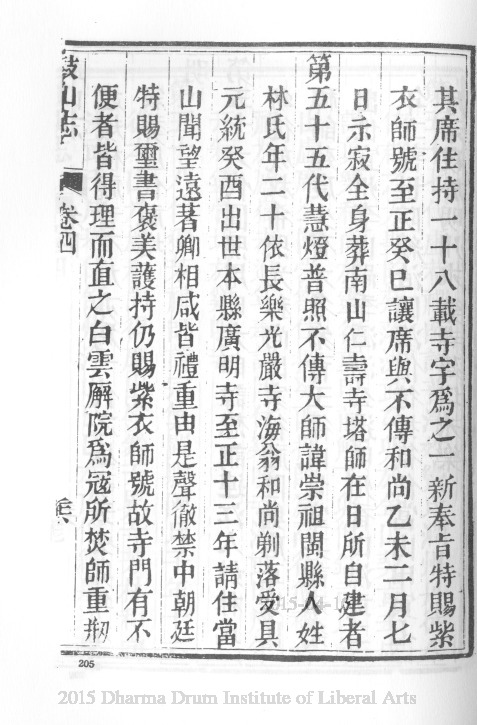 其席住持一十八載寺宇爲之一新奉旨特賜紫
衣師號至正癸巳讓席與不傳和尚乙未二月七
日示寂全身葬南山仁壽寺塔師在日所自建者
第五十五代慧燈普照不傳大師諱崇祖閩縣人姓
林氏年二十依長樂光嚴寺海翁和尚剃落受具
元統癸酉出世本縣廣明寺至正十三年請住當
山聞望遠著卿相咸皆禮重由是聲徹禁中朝廷
特賜璽書褒美護持仍賜紫衣師號故寺門有不
便者皆得理而直之白雲廨院爲冦所焚師重剏
鼓山志
卷四
205
2015 Dharma Drum Institute of Liberal Arts